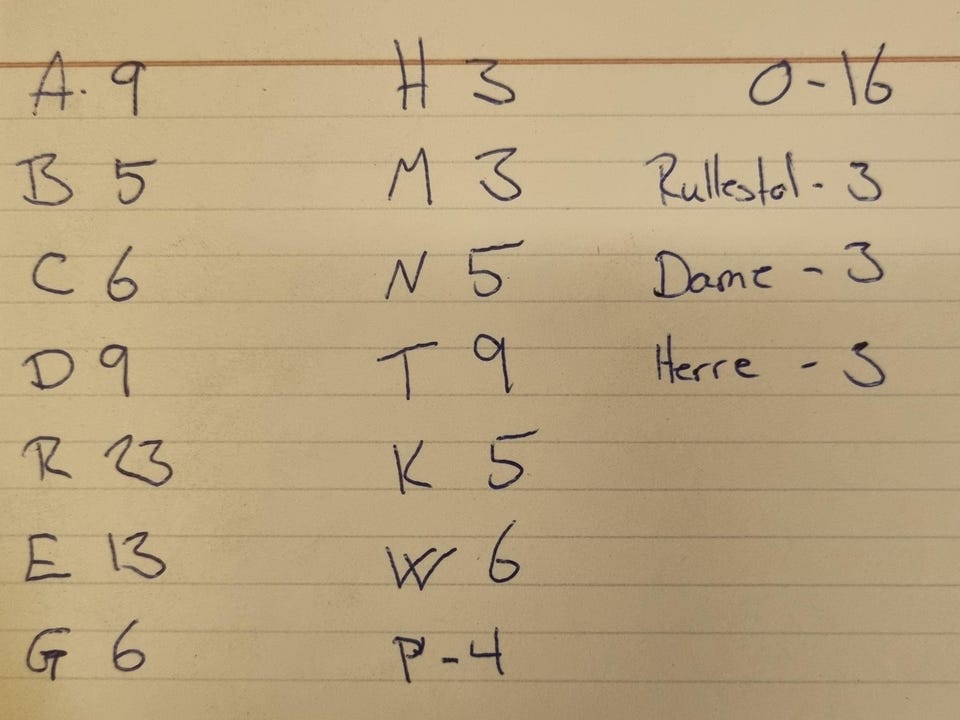 A. 9
B 5
C 6
D 9
R 23
E 13
G 6
H 3
M 3
N 5
T 9
K 5
W 6
P - 4
O - 16
Rullestol - 3
Dame - 3
Herre - 3